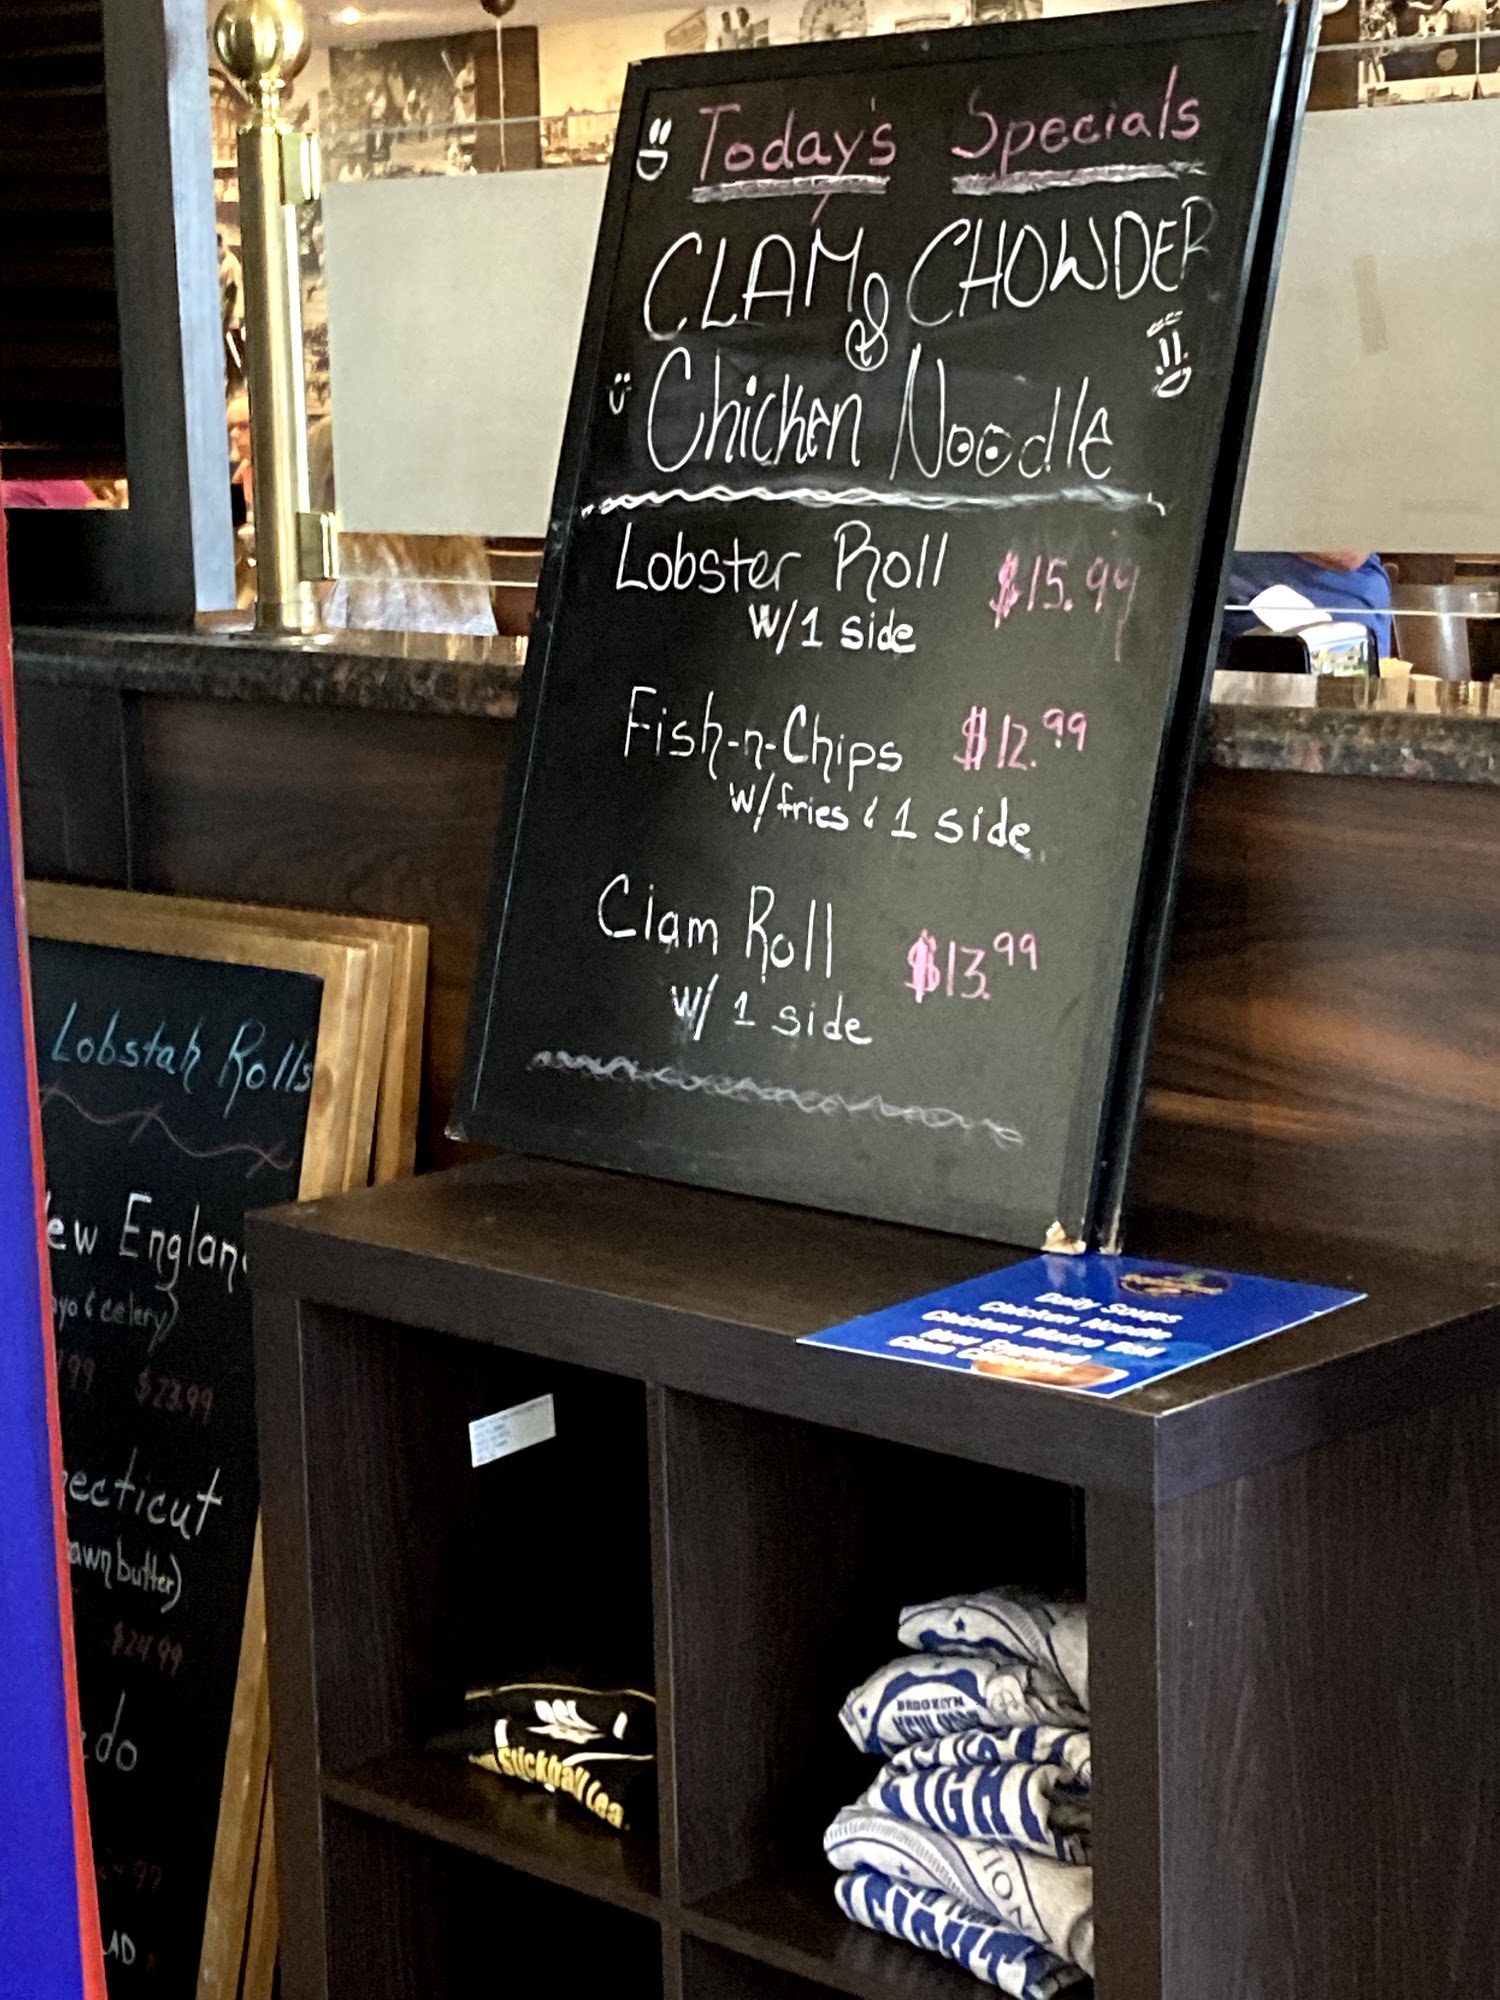 Today's Specials
CLAM CHOWDER
&
Chicken Noodle
Lobster Roll $15.99
w/1 side
Fish-n-Chips $12.99
w/fries & 1 side
Clam Roll $13.99
w/ 1 side
Lobstah Rolls
ew England
yo & celery)
99 $23.99
ecticut
awn butter)
$24.99
do
AD
Daily Soups
Chicken Noodle
Chicken Matzo Ball
New England
Clam Chowder
Stickball Lea
BROOKLYN
NEW YORK